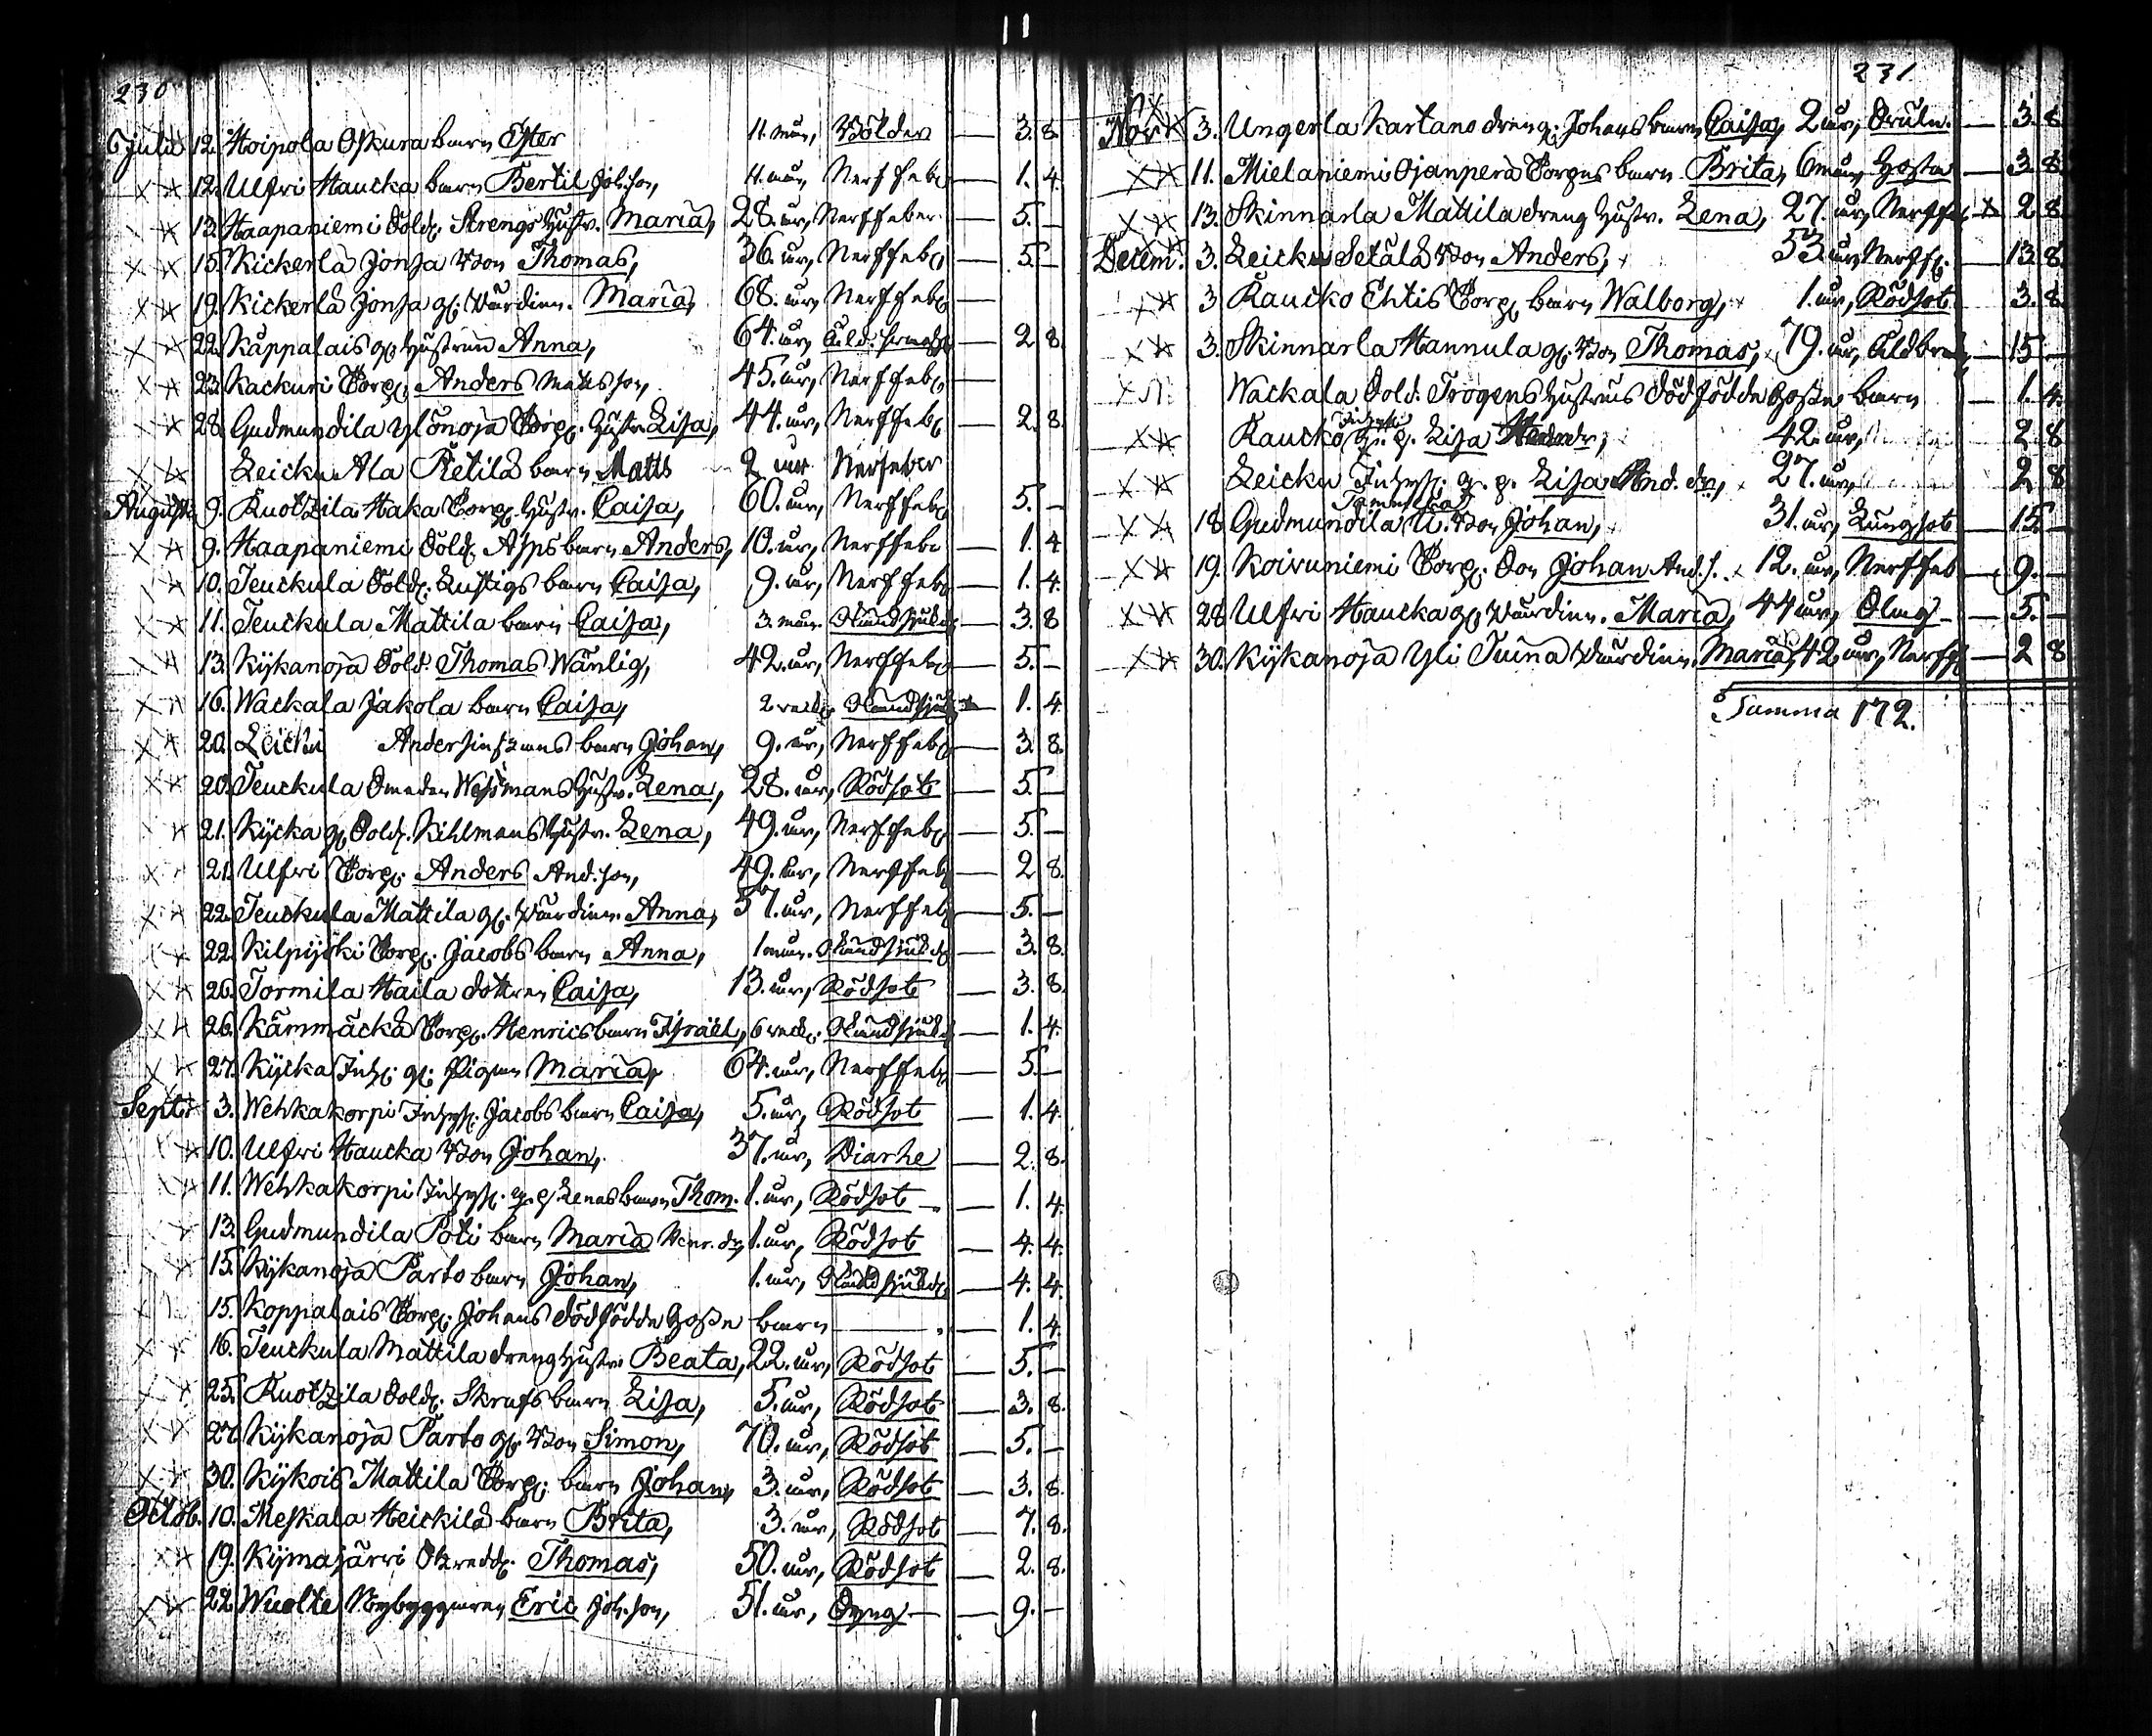 230
Julii 12. Hoipola Oskura barn Ester 11. mån, Bölder — 3. 8.
12. Ulfri Haucka barn Bertil Joh:son, 11. mån, Nerffeb. — 1. 4.
13. Haapaniemi Sold. Strengs hustr. Maria, 28. år, Nerffeber — 5. —
15. Kickerlä Jonsa Son Thomas, 36. år, Nerffeb. — 5. —
19. Kickerlä Jonsa g. Värdinn. Maria, 68. år, Nerffeb. —
22. Kappalais g. hustrun Anna, 64. år, — 2 8.
23. Kackuri Torp. Anders Matts son, 45. år, Nerffeb. —
28. Gudmundila Ylönoja Torp. hustr. Lisa, 44. år, Nerffeb. — 2. 8.
Leicku Ala Pietilä barn Matts 2 år Nerfeber
August. 9. Ruotzila Haka Torp. hustr. Caisa, 60. år, Nerffeb. — 5. —
9. Haapaniemi Sold. Asps barn Anders, 10. år, Nerffebr — 1. 4
10. Teuckula Sold. Lustigs barn Caisa, 9. år, Nerffeb. — 1. 4.
11. Teuckula Mattila barn Caisa, 3. mån. — 3. 8
13. Kykänoja Sold. Thomas Wänlig, 42. år, Nerffeb. — 5. —
16. Wackala Jakola barn Caisa, 2 veck. — 1. 4
20. Leicku barn Johan, 9. år, Nerffeb. — 3. 8.
20. Teuckula Smeden Wessmans hustr. Lena, 28. år, Rödsot — 5. —
21. Kycka g. Sold. Kihlmans hustr. Lena, 49. år, Nerffeb. — 5. —
21. Ulfvi Torp. Anders And. son, 49. år, Nerffeb — 2 8.
22. Teuckula Mattila g. Värdinn. Anna, 57. år, Nerffeb — 5. —
22. Kilpijoki Torp. Jacobs barn Anna, 1 mån. — 3. 8.
26. Tormila Haila dottren Caisa, 13. år, Rödsot — 3. 8.
26. Kämmäckä Torp. Henrics barn Israel, 6 veck. — 1. 4.
27. Kycka Inh. g. Pigan Maria, 64. år, Nerffeb — 5. —
Sept. 3. Wehkakorpi Inhys. Jacobs barn Caisa, 5. år, Rödsot — 1. 4.
10. Ulfvi Haucka Son Johan, 37. år, Diarhe — 2. 8.
11. Wehkakorpi Inhys. q. p. Lenas barn Thom. 1. år, Rödsot — 1. 4.
13. Gudmundila Poti barn Maria Henr. dr, 1. år, Rödsot — 4. 4.
15. Kykänoja Parto barn Johan, 1. år, — 4. 4.
15. Koppalais Torp. Johans dödfödde Gosse barn — 1. 4.
16. Teuckula Mattila dreng hustr. Beata, 22. år, Rödsot — 5. —
25. Ruotzila Sold. Skrafs barn Lisa, 5. år, Rödsot — 3. 8.
27. Kykänoja Parto g. Son Simon, 70. år, Rödsot — 5. —
30. Kykois Mattila Torp. barn Johan, 3. år, Rödsot — 3. 8.
Octob. 10. Meskala Heickilä barn Brita, 3. år, Rödsot — 7. 8.
19. Kymäjärvi Thomas, 50. år, Rödsot — 2. 8.
22. Wuolte Nybyggaren Eric Joh. son, 51. år, — 9. —
231
Nov. 3. Ungerla Kartano dreng. Johans barn Caisa, 2 år, — 3. 8
11. Mielaniemi Ojanperä Torpes barn Brita, 6 mån, Hosta — 3. 8
13. Skinnarla Mattila dreng hustr. Lena, 27. år, Nerffeb 2. 8
Decem. 3. Leicku Setälä Son Anders, 53. år, Nerff. — 13. 8.
3. Raucko Ehtis Torp. barn Walborg, 1. år, Rödsot — 3. 8.
3. Skinnarla Hannula g. Son Thomas, 79. år, — 15. —
Wackala Sold. Trogens hustrus dödfödde Gosse barn — 1. 4.
Raucko q. p. Lisa 42. år, 2. 8
Leicku Inhys. q. p. Lisa And. dr., 27. år, 2. 8
18. Gudmundila Tammiska Son Johan, 31. år, Lungsot — 15. —
19. Koivuniemi Torp. Son Johan And. s. 12. år, Nerffeb — 9. —
28. Ulfvi Haucka g. Värdinn. Maria, 44 år, — 5. —
30. Kykänoja Yli Tuina Värdinn. Maria, 42 år, Nerff — 2 8
Summa 172.